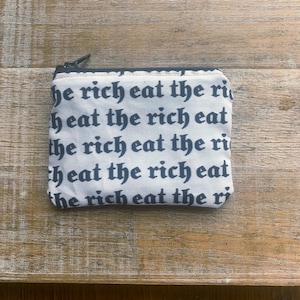 he rich eat the ri
eat the rich eat
the rich eat the ri
eat the rich eat
the rich eat the ri